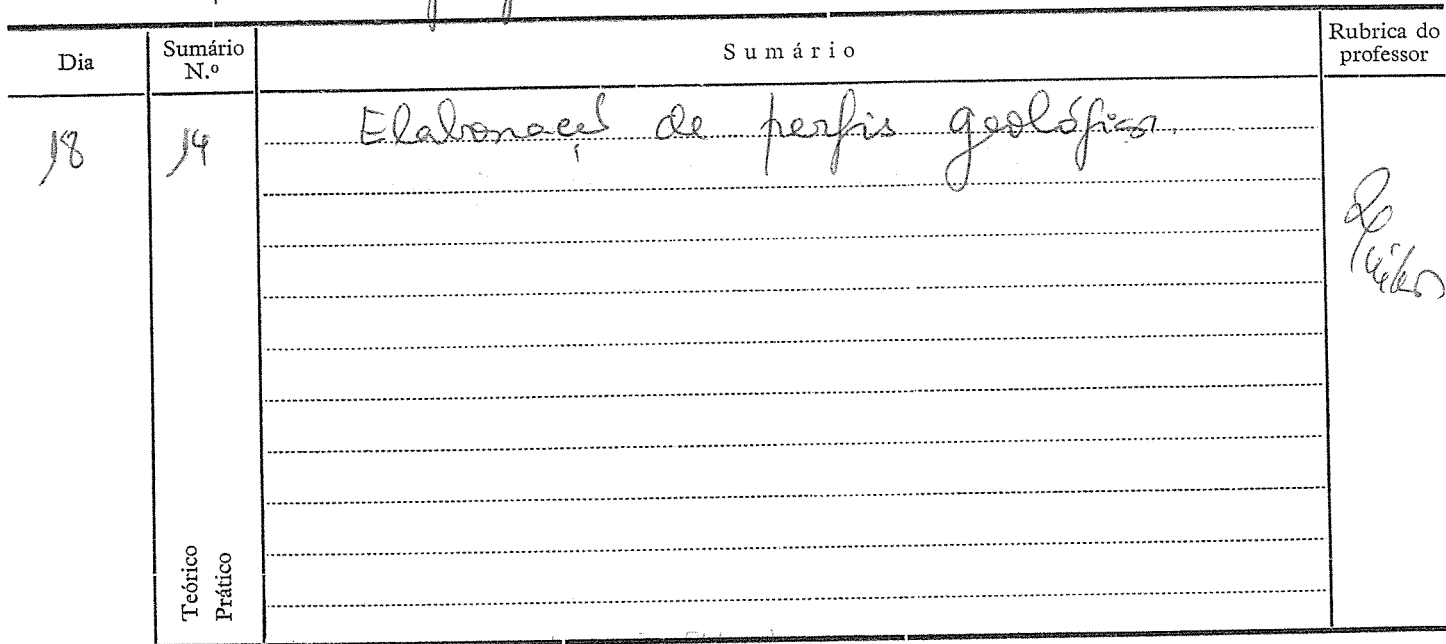 Dia
Sumário N.º
Sumário
Rubrica do professor
18
14
Elaboração de perfis geológicos.
Teórico
Prático